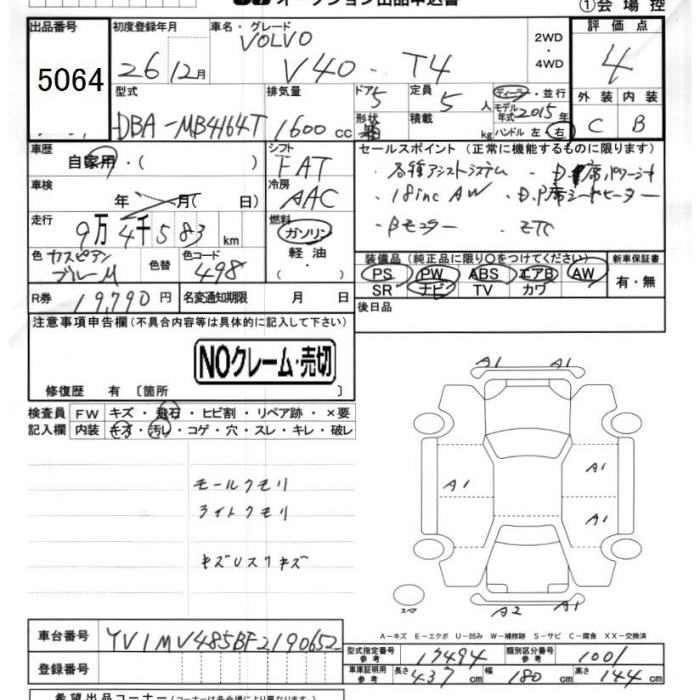 オークション出品申込書 ①会場控
出品番号 初度登録年月 車名・グレード 評価点
5064 26 12月 VOLVO V40 - T4 2WD ・ 4WD 4
型式 排気量 ドア 定員 ディーラー・並行 外装 内装
DBA-MB4164T 1600cc 5 5人 モデル年式 2015年 C B
形状 積載 kg ハンドル 左・右
車歴 シフト セールスポイント (正常に機能するものに限ります)
自家用・( ) FAT ・各種アシストシステム ・D.席パワーシート
車検 年 月( 日) 冷房 AAC ・18inc AW ・D.P席シートヒーター
走行 9万4千583km 燃料 ガソリン 軽油 ・( ) ・Bモニター ・ETC
色 カスピアンブルーM 色替 色コード 498
装備品 (純正品に限り○をつけてください) 新車保証書
PS PW ABS エアB AW 有・無
SR ナビ TV カワ
R券 19,790円 名変通知期限 月 日 後日品
注意事項申告欄(不具合内容等は具体的に記入して下さい)
NOクレーム・売切
修復歴 有 〔箇所 〕
検査員 FW キズ・飛石・ヒビ割・リペア跡・×要
記入欄 内装 キズ・汚レ・コゲ・穴・スレ・キレ・破レ
A1 A1
A1 A1
A1
モールクモリ
ライトクモリ
キズUスリキズ
スペア A2 A1
A-キズ E-エクボ U-凹み W-補修跡 S-サビ C-腐食 XX-交換済
車台番号 YV1MV485BF2190652
型式指定番号 参考 17494 類別区分番号 参考 1001
登録番号 車庫証明用 参考 長さ 437cm 幅 180cm 高さ 144cm
希望出品コーナー